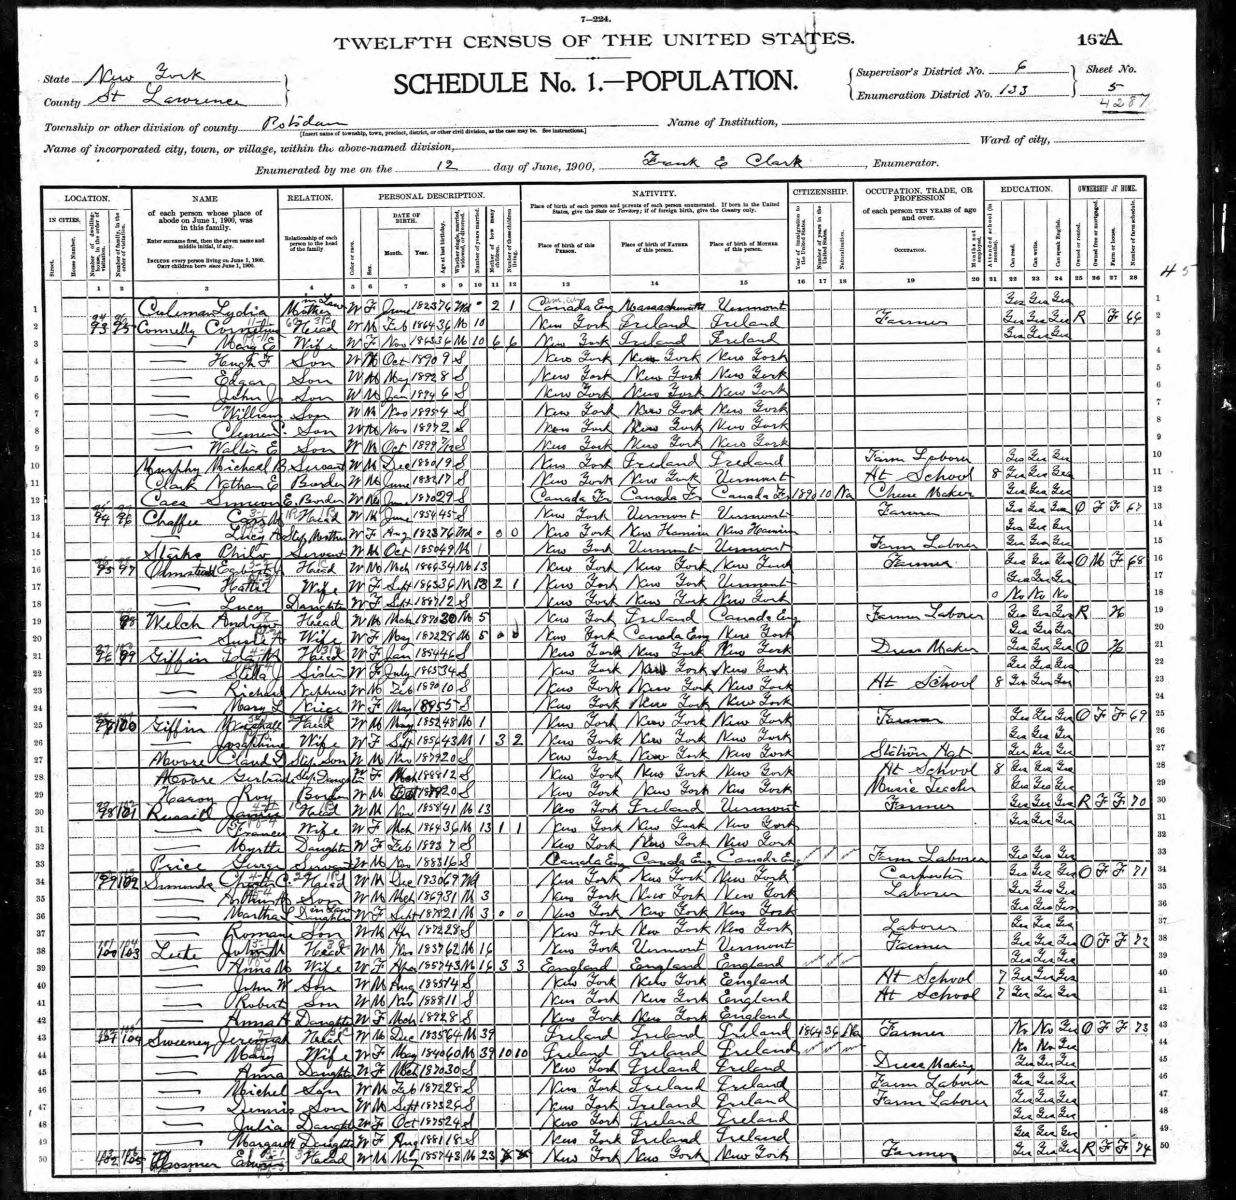 7—224.
TWELFTH CENSUS OF THE UNITED STATES.
167A
State New York
SCHEDULE No. 1.—POPULATION.
Supervisor's District No. 6
Sheet No.
County St Lawrence
Enumeration District No. 133
5
4287
Township or other division of county Potsdam
Name of Institution,
[Insert name of township, town, precinct, district, or other civil division, as the case may be. See instructions.]
Name of incorporated city, town, or village, within the above-named division,
Ward of city,
Enumerated by me on the 12 day of June, 1900, Frank E Clark, Enumerator.
LOCATION. NAME RELATION. PERSONAL DESCRIPTION. NATIVITY. CITIZENSHIP. OCCUPATION, TRADE, OR PROFESSION EDUCATION. OWNERSHIP OF HOME.
IN CITIES. Street. House Number.
of each person whose place of abode on June 1, 1900, was in this family.
Enter surname first, then the given name and middle initial, if any.
INCLUDE every person living on June 1, 1900.
OMIT children born since June 1, 1900.
Relationship of each person to the head of the family
DATE OF BIRTH. Month. Year.
Place of birth of each person and parents of each person enumerated. If born in the United States, give the State or Territory; if of foreign birth, give the Country only.
Place of birth of this PERSON. Place of birth of FATHER of this person. Place of birth of MOTHER of this person.
of each person TEN YEARS of age and over.
OCCUPATION.
1 2 3 4 5 6 7 8 9 10 11 12 13 14 15 16 17 18 19 20 21 22 23 24 25 26 27 28
1 Coleman Lydia Mother in Law W F June 1823 76 Wd 2 1 Canada Eng Massachusetts Vermont Yes Yes Yes 1
2 93 95 Connelly Cornelius Head W M Feb 1864 36 M 10 New York Ireland Ireland Farmer Yes Yes Yes R F 66 2
3 — Mary E Wife W F Nov 1863 36 M 10 6 6 New York Ireland Ireland Yes Yes Yes 3
4 — Hugh F Son W M Oct 1890 9 S New York New York New York 4
5 — Edgar Son W M May 1892 8 S New York New York New York 5
6 — John J Son W M Jan 1894 6 S New York New York New York 6
7 — William Son W M Nov 1895 4 S New York New York New York 7
8 — Clemen C. Son W M Nov 1897 2 S New York New York New York 8
9 — Walter E Son W M Oct 1899 7/12 S New York New York New York 9
10 Murphy Michael B Servant W M Dec 1880 19 S New York Ireland Ireland Farm Laborer Yes Yes Yes 10
11 Clark Nathan E Boarder W M June 1882 17 S New York New York Vermont At School 8 Yes Yes Yes 11
12 Simeon E Border W M June 1870 29 S Canada Fr Canada Fr Canada Fr 1890 10 Na Cheese Maker Yes Yes Yes 12
13 94 96 Chaffee Head W M June 1854 45 S New York Vermont Vermont Farmer Yes Yes Yes O F F 67 13
14 — Lucy A Step Mother W F Aug 1823 76 Wd 0 0 New York New Hamsire New Hamsire Yes Yes Yes 14
15 Philo Servant W M Oct 1850 49 M 1 New York Vermont Vermont Farm Laborer Yes Yes Yes 15
16 95 97 Olmstead Head W M Mch 1866 34 M 13 New York New York New York Farmer Yes Yes Yes O M F 68 16
17 — Wife W F Sept 1863 36 M 13 2 1 New York New York Vermont Yes Yes Yes 17
18 — Lucy Daughter W F Sept 1887 12 S New York New York New York 0 No No No 18
19 98 Welch Andrew Head W M Mch 1870 30 M 5 New York Ireland Canada Eng Farmer Laborer Yes Yes Yes R H 19
20 — Susie A Wife W F May 1872 28 M 5 0 0 New York Canada Eng New York Yes Yes Yes 20
21 96 99 Giffin Head W F Jan 1854 46 S New York New York New York Dress Maker Yes Yes Yes O H 21
22 — Stella J Sister W F July 1865 34 S New York New York New York Yes Yes Yes 22
23 — Richard Nephew W M Feb 1890 10 S New York New York New York At School 8 Yes Yes Yes 23
24 — Mary L Niece W F May 1895 5 S New York New York New York 24
25 97 100 Giffin Marshall Head W M May 1852 48 M 1 New York New York New York Farmer Yes Yes Yes O F F 69 25
26 — Josephine Wife W F Sept 1856 43 M 1 3 2 New York New York New York Yes Yes Yes 26
27 Moore Claud D Step Son W M Nov 1879 20 S New York New York New York Station Agt Yes Yes Yes 27
28 Moore Gertrude Step Daughter W F Mch 1888 12 S New York New York New York At School 8 Yes Yes Yes 28
29 Roy Border W M Oct 20 S New York New York New York Music Teacher Yes Yes Yes 29
30 98 101 Russell James Head W M Nov 1858 41 M 13 New York Ireland Vermont Farmer Yes Yes Yes R F F 70 30
31 — Frances Wife W F Mch 1864 36 M 13 1 1 New York New York New York Yes Yes Yes 31
32 — Myrtle Daughter W F Feb 1893 7 S New York New York New York 32
33 Price George Servant W M Nov 1883 16 S Canada Eng Canada Eng Canada Eng Farm Laborer Yes Yes Yes 33
34 99 102 Simonds C. Head W M Dec 1830 69 Wd New York New York New York Carpenter Yes Yes Yes O F F 71 34
35 — Arthur H Son W M Mch 1869 31 M 3 New York New York New York Laborer Yes Yes Yes 35
36 — Martha L Daughter in Law W F Sept 1878 21 M 3 0 0 New York New York New York Yes Yes Yes 36
37 — Romane Son W M Apr 1872 28 S New York New York New York Laborer Yes Yes Yes 37
38 100 103 Leete John M Head W M Nov 1837 62 M 16 New York Vermont Vermont Farmer Yes Yes Yes O F F 72 38
39 — Anna M Wife W F Apr 1857 43 M 16 3 3 England England England Yes Yes Yes 39
40 — John W Son W M Aug 1885 14 S New York New York England At School 7 Yes Yes Yes 40
41 — Robert Son W M Nov 1888 11 S New York New York England At School 7 Yes Yes Yes 41
42 — Anna H Daughter W F Mch 1892 8 S New York New York England 42
43 101 104 Sweeney Jeremiah Head W M Dec 1835 64 M 39 Ireland Ireland Ireland 1864 36 Na Farmer No No Yes O F F 73 43
44 — Mary Wife W F May 1840 60 M 39 10 10 Ireland Ireland Ireland No No Yes 44
45 — Anna Daughter W F Mch 1870 30 S New York Ireland Ireland Dress Making Yes Yes Yes 45
46 — Michel Son W M Feb 1872 28 S New York Ireland Ireland Farm Laborer Yes Yes Yes 46
47 — Dennis Son W M Sept 1873 26 S New York Ireland Ireland Farm Laborer Yes Yes Yes 47
48 — Julia Daughter W F Oct 1875 24 S New York Ireland Ireland Yes Yes Yes 48
49 — Margaret Daughter W F Aug 1881 18 S New York Ireland Ireland Yes Yes Yes 49
50 102 105 Head W M May 1857 43 M 23 New York New York New York Farmer Yes Yes Yes R F F 74 50